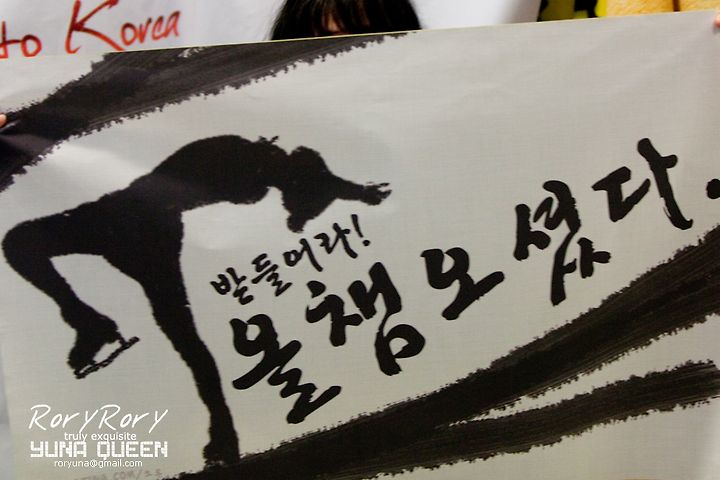 to Korea
받들어라!
올챔오셨다.
RoryRory
truly exquisite
YUNA QUEEN
roryuna@gmail.com